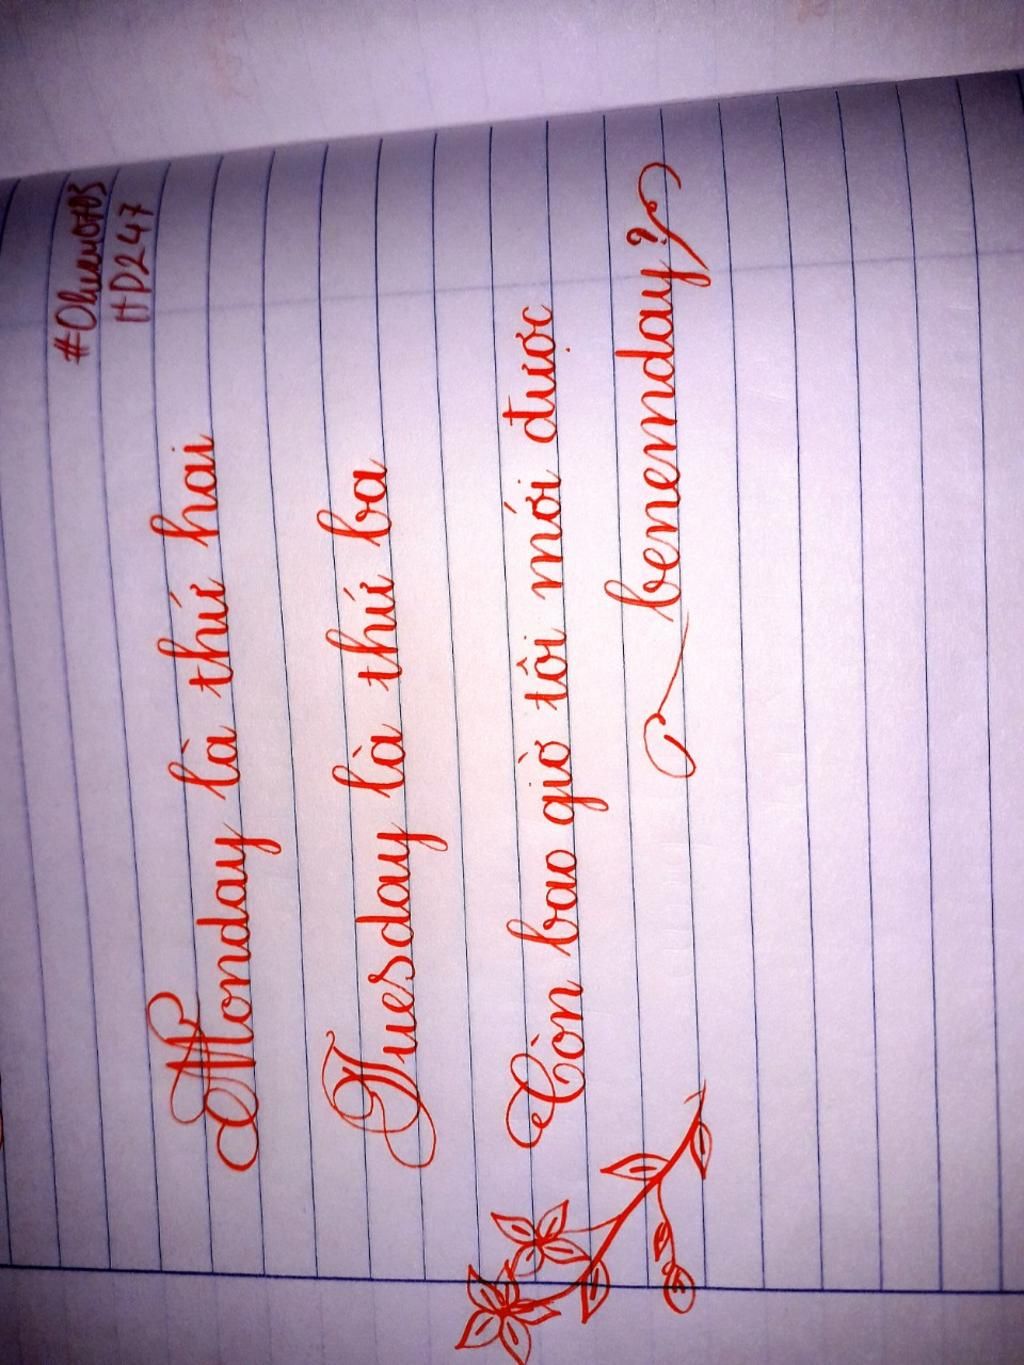 HD247
Monday là thứ hai
Tuesday là thứ ba
Còn bao giờ tôi mới được
benemday?